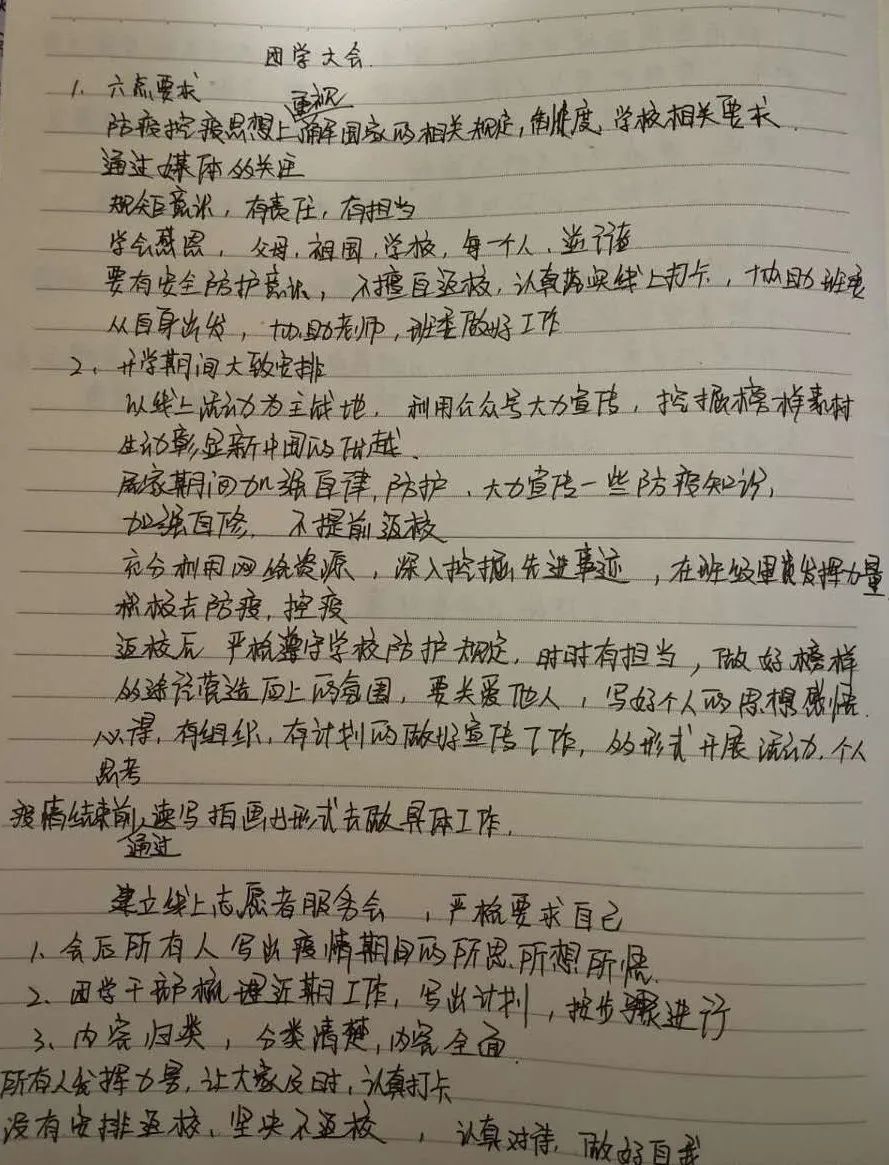 团学大会.
1. 六点要求
重视
防疫控疫思想上了解国家的相关规定,制度,学校相关要求.
通过媒体的关注
规矩意识,有责任,有担当
学会感恩,父母,祖国,学校,每一个人,逆行者
要有安全防护意识,不擅自返校,认真落实线上打卡,协助班委
从自身出发,协助老师,班委做好工作
2、开学期间大致安排
以线上活动为主战地,利用公众号大力宣传,挖掘榜样素材
生动彰显新中国的优越.
居家期间加强自律,防护、大力宣传一些防疫知识,
加强自修,不提前返校
充分利用网络资源,深入挖掘先进事迹,在班级里发挥力量
积极去防疫,控疫
返校后 严格遵守学校防护规定,时时有担当,做好榜样
的途径营造向上的氛围,要关爱他人,写好个人的思想感悟.
心得,有组织,有计划的做好宣传工作,的形式开展活动,个人
思考
疫情结束前,读写拍画的形式去做具体工作.
通过
建立线上志愿者服务会,严格要求自己
1、会后所有人写出疫情期间的所思、所想所悟.
2、团学干部梳理近期工作,写出计划,按步骤进行
3、内容归类,分类清楚,内容全面.
所有人发挥力量,让大家及时,认真打卡
没有安排返校,坚决不返校,认真对待,做好自我